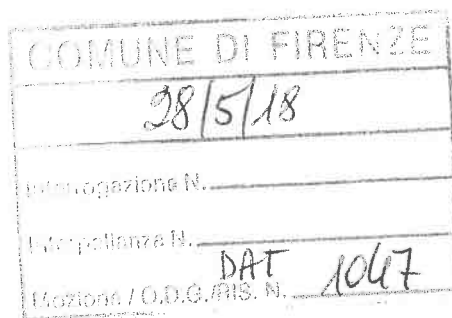 COMUNE DI FIRENZE
28/5/18
Interrogazione N.
Interpellanza N.
DAT 1047
Mozione / O.D.G./RIS. N.